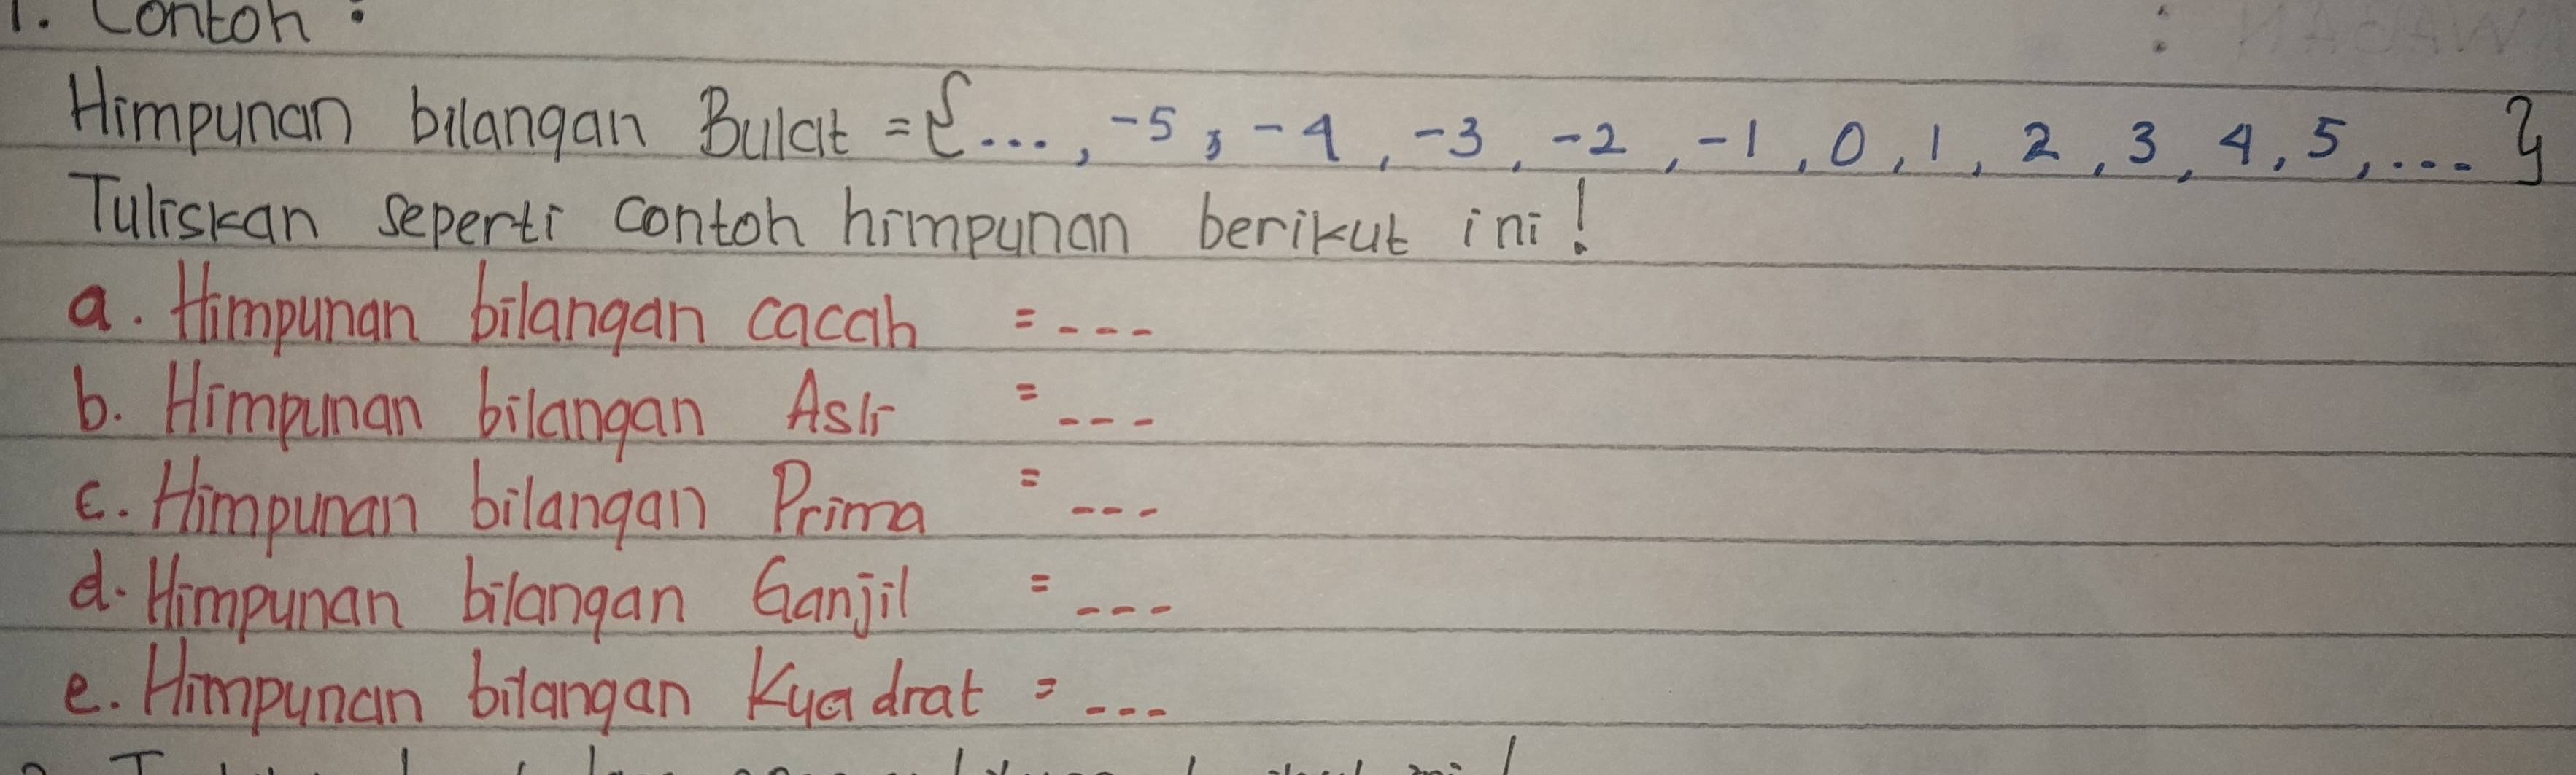 1. Contoh :
Himpunan bilangan Bulat = {..., -5, -4, -3, -2, -1, 0, 1, 2, 3, 4, 5, ... }
Tuliskan seperti contoh himpunan berikut ini!
a. Himpunan bilangan cacah = ---
b. Himpunan bilangan Asli = ---
c. Himpunan bilangan Prima = ---
d. Himpunan bilangan Ganjil = ---
e. Himpunan bilangan Kuadrat = ---